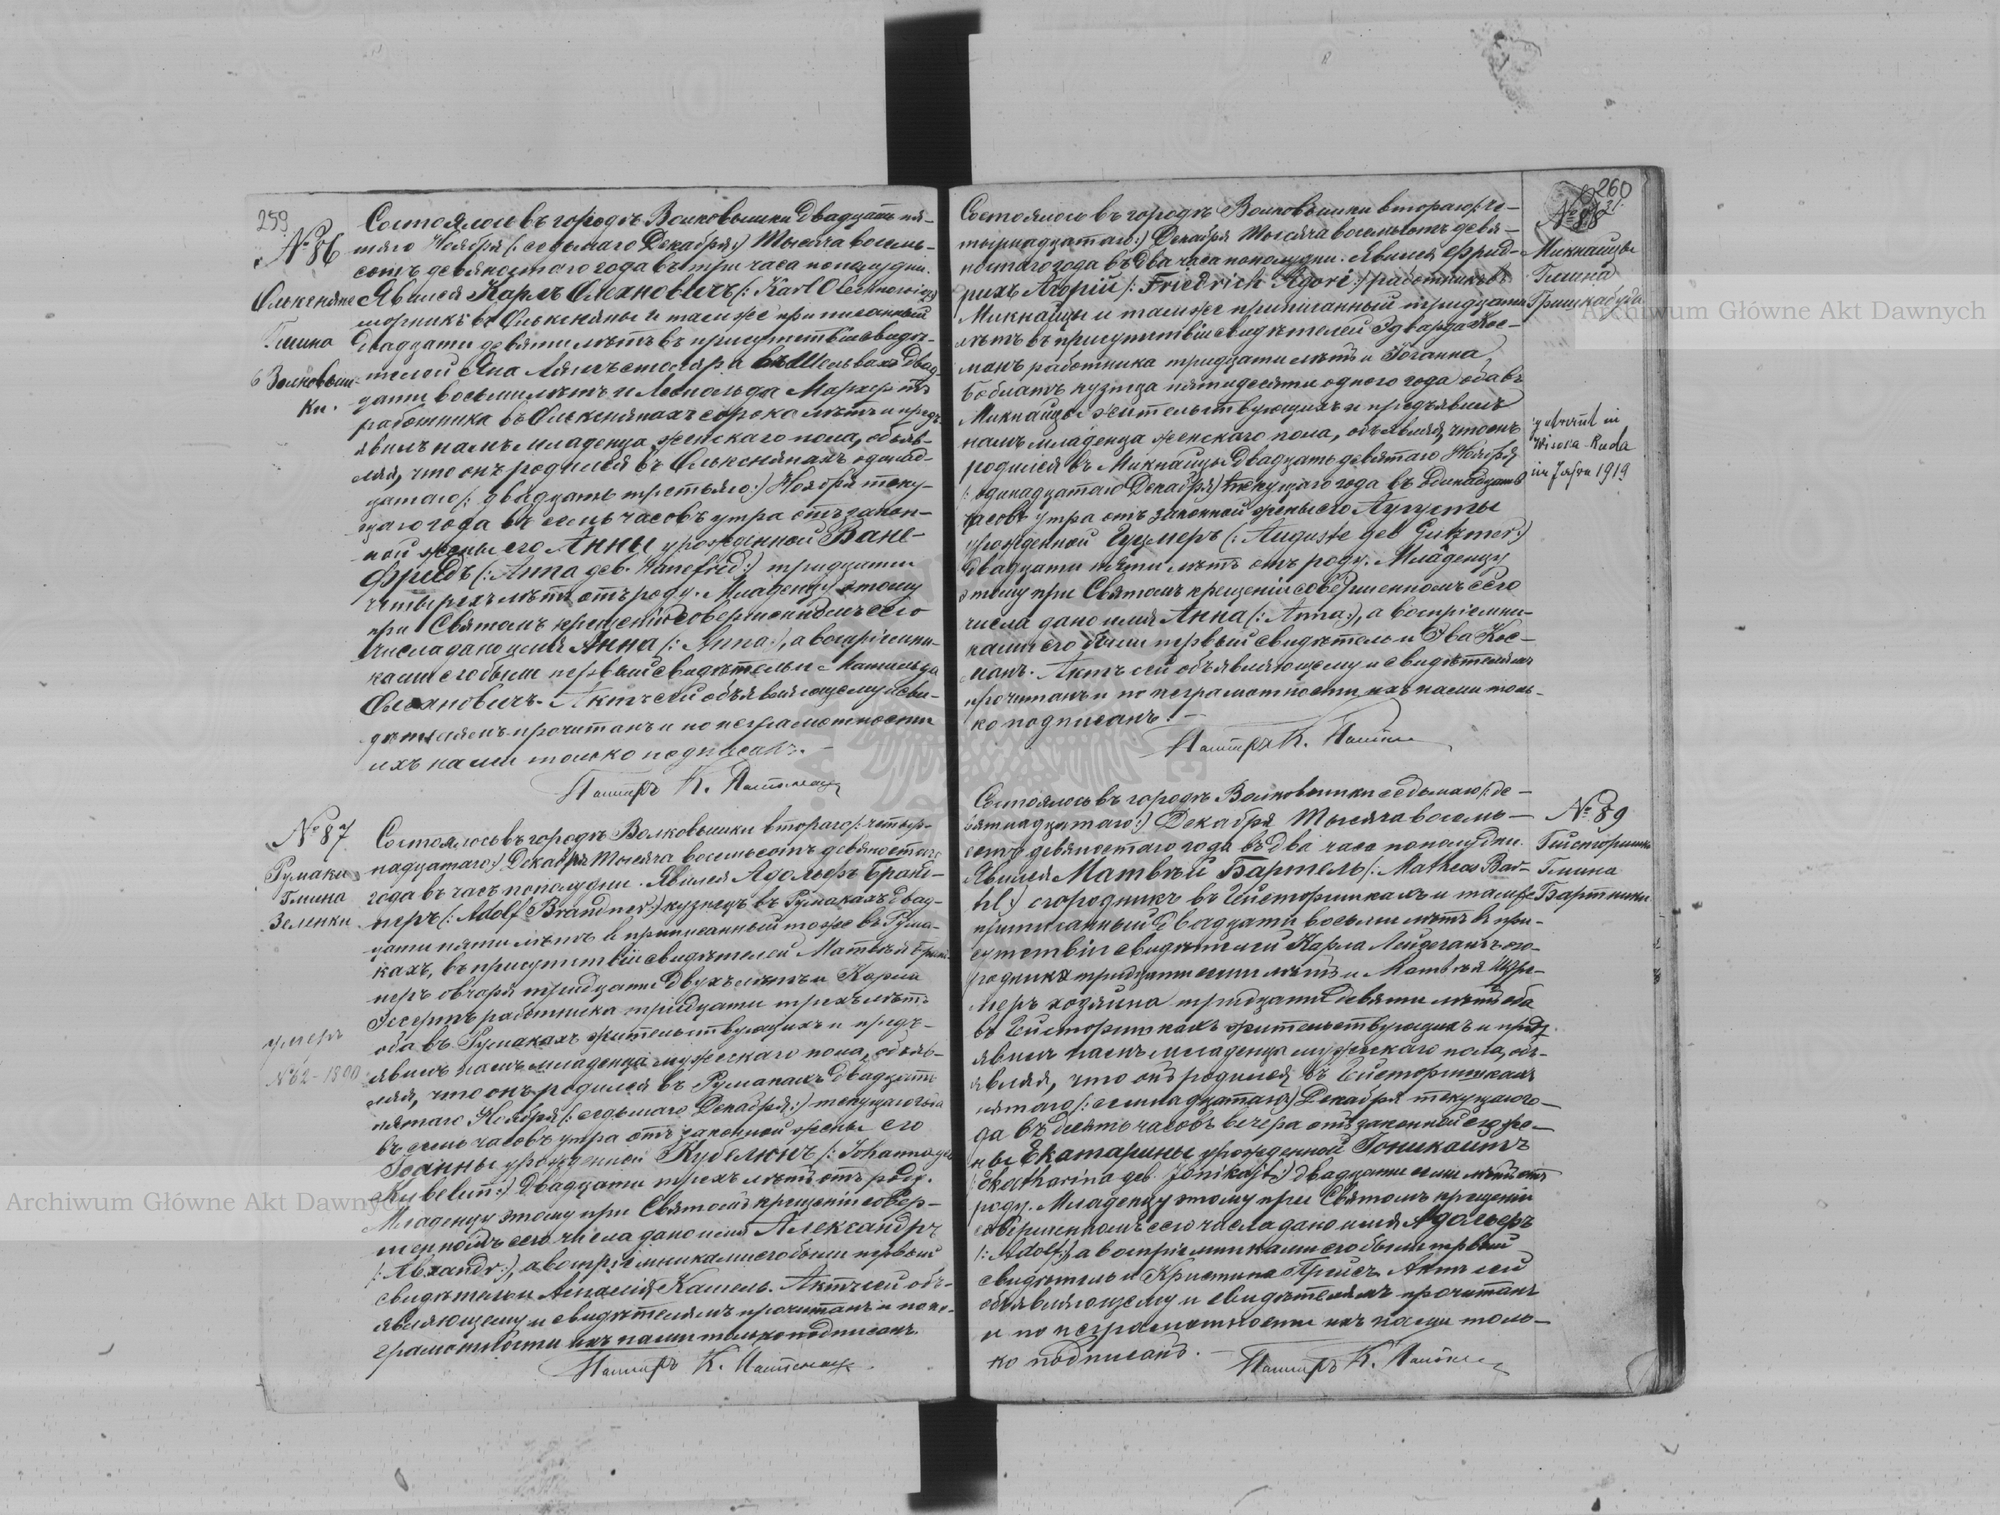 259
№ 86
Олькеняне
Гмина
Волковыш-
ки.
Состоялось въ городѣ Волковышки двадцать пя-
таго Ноября /: седьмаго Декабря :/ тысяча восемь-
сотъ девяностаго года въ три часа пополудни.
Явился Карлъ Олехновичъ /: Karl Olechnowicz :/
въ Олькеняны и тамже приписанный
двадцати девяти лѣтъ въ присутствіи свидѣ-
телей Яна столяра въ Шельвахъ двад-
цати восьми лѣтъ и Леопольда
работника въ Олькенянахъ сорока лѣтъ и предъ-
явилъ намъ младенца женскаго пола, объяв-
ляя, что онъ родился въ Олькенянахъ одинад-
цатаго /: двадцать третьяго :/ Ноября теку-
щаго года въ семь часовъ утра отъ закон-
ной жены его Анны урожденной Ване-
фридъ /: Anna geb. Wanefrid :/ тридцати
четырехъ лѣтъ отъ роду. Младенцу этому
при Святомъ крещеніи совершенномъ сего
числа дано имя Анна /: Anna :/, а воспріемни-
ками его были первый свидѣтель и Матильда
Олехновичъ. Актъ сей объявляющему и сви-
дѣтелямъ прочитанъ и по неграмотности
ихъ нами только подписанъ. —
Пасторъ К.
№ 87
Румаки
Гмина
Зеленки
умеръ
№ 62 - 1890
Состоялось въ городѣ Волковышки втораго /: четыр-
надцатаго :/ Декабря тысяча восемьсотъ девяностаго
года въ часъ пополудни. Явился Адольфъ Бранд-
неръ /: Adolf Brandner :/ кузнецъ въ Румакахъ двад-
цати пяти лѣтъ и приписанный тоже въ Рума-
кахъ, въ присутствіи свидѣтелей Матвѣя
неръ овчаря тридцати двухъ лѣтъ и Карла
работника тридцати трехъ лѣтъ
оба въ Румакахъ жительствующихъ и предъ-
явилъ намъ младенца мужескаго пола, объяв-
ляя, что онъ родился въ Румакахъ двадцать
пятаго Ноября /: седьмаго Декабря :/ текущаго года
въ семь часовъ утра отъ законной жены его
Іоанны урожденной Кубелюнъ /: Johanna geb.
Kubelun :/ двадцати трехъ лѣтъ отъ роду.
Младенцу этому при Святомъ крещеніи совер-
шенномъ сего числа дано имя Александръ
/: Alexandr :/, а воспріемниками его были первый
свидѣтель и Амалія Кашель. Актъ сей объ-
являющему и свидѣтелямъ прочитанъ и по не-
грамотности ихъ нами только подписанъ.
Пасторъ К.
260
№ 88
Микнайцы
Гмина
Гришкабуда
getraut in
Wisoka-Ruda
im Jahre 1919
Состоялось въ городѣ Волковышки втораго /: че-
тырнадцатаго :/ Декабря тысяча восемьсотъ девя-
ностаго года въ два часа пополудни. Явился Фрид-
рихъ /: Friedrich Agori :/ работникъ въ
Микнайцы и тамже приписанный тридцати
лѣтъ въ присутствіи свидѣтелей Эдварда Кос-
манъ работника тридцати лѣтъ и Іоганна
Боблатъ кузнеца пятидесяти одного года оба въ
Микнайцы жительствующихъ и предъявилъ
намъ младенца женскаго пола, объявляя, что онъ
родился въ Микнайцы двадцать девятаго Ноября
/: одинадцатаго Декабря :/ текущаго года въ одинадцать
часовъ утра отъ законной жены его Августы
урожденной Гуцмеръ /: Auguste geb Gutzmer :/
двадцати пяти лѣтъ отъ роду. Младенцу
этому при Святомъ крещеніи совершенномъ сего
числа дано имя Анна /: Anna :/, а воспріемни-
ками его были первый свидѣтель и Эва Кос-
манъ. Актъ сей объявляющему и свидѣтелямъ
прочитанъ и по неграмотности ихъ нами толь-
ко подписанъ. —
Пасторъ К.
№ 89
Гмина
Бартники
Состоялось въ городѣ Волковышки седьмаго /: де-
вятнадцатаго :/ Декабря тысяча восемь-
сотъ девяностаго года въ два часа пополудни.
Явился Матвѣй Бартель /: Matheas Bar-
tel :/ огородникъ въ и тамже
приписанный двадцати восьми лѣтъ въ при-
сутствіи свидѣтелей Карла ого-
родника тридцати семи лѣтъ и Матвѣя
меръ хозяина тридцати девяти лѣтъ оба
въ жительствующихъ и предъ-
явилъ намъ младенца мужескаго пола, объ-
являя, что онъ родился въ
пятаго /: семнадцатаго :/ Декабря текущаго го-
да въ десять часовъ вечера отъ законной его же-
ны Екатарины урожденной Іоникайтъ
/: Ekatharina geb. Jonikajt :/ двадцати семи лѣтъ отъ
роду. Младенцу этому при Святомъ крещеніи
совершенномъ сего числа дано имя Адольфъ
/: Adolf :/, а воспріемниками его были первый
свидѣтель и Кристина Актъ сей
объявляющему и свидѣтелямъ прочитанъ
и по неграмотности ихъ нами толь-
ко подписанъ. —
Пасторъ К.
Archiwum Główne Akt Dawnych
Archiwum Główne Akt Dawnych